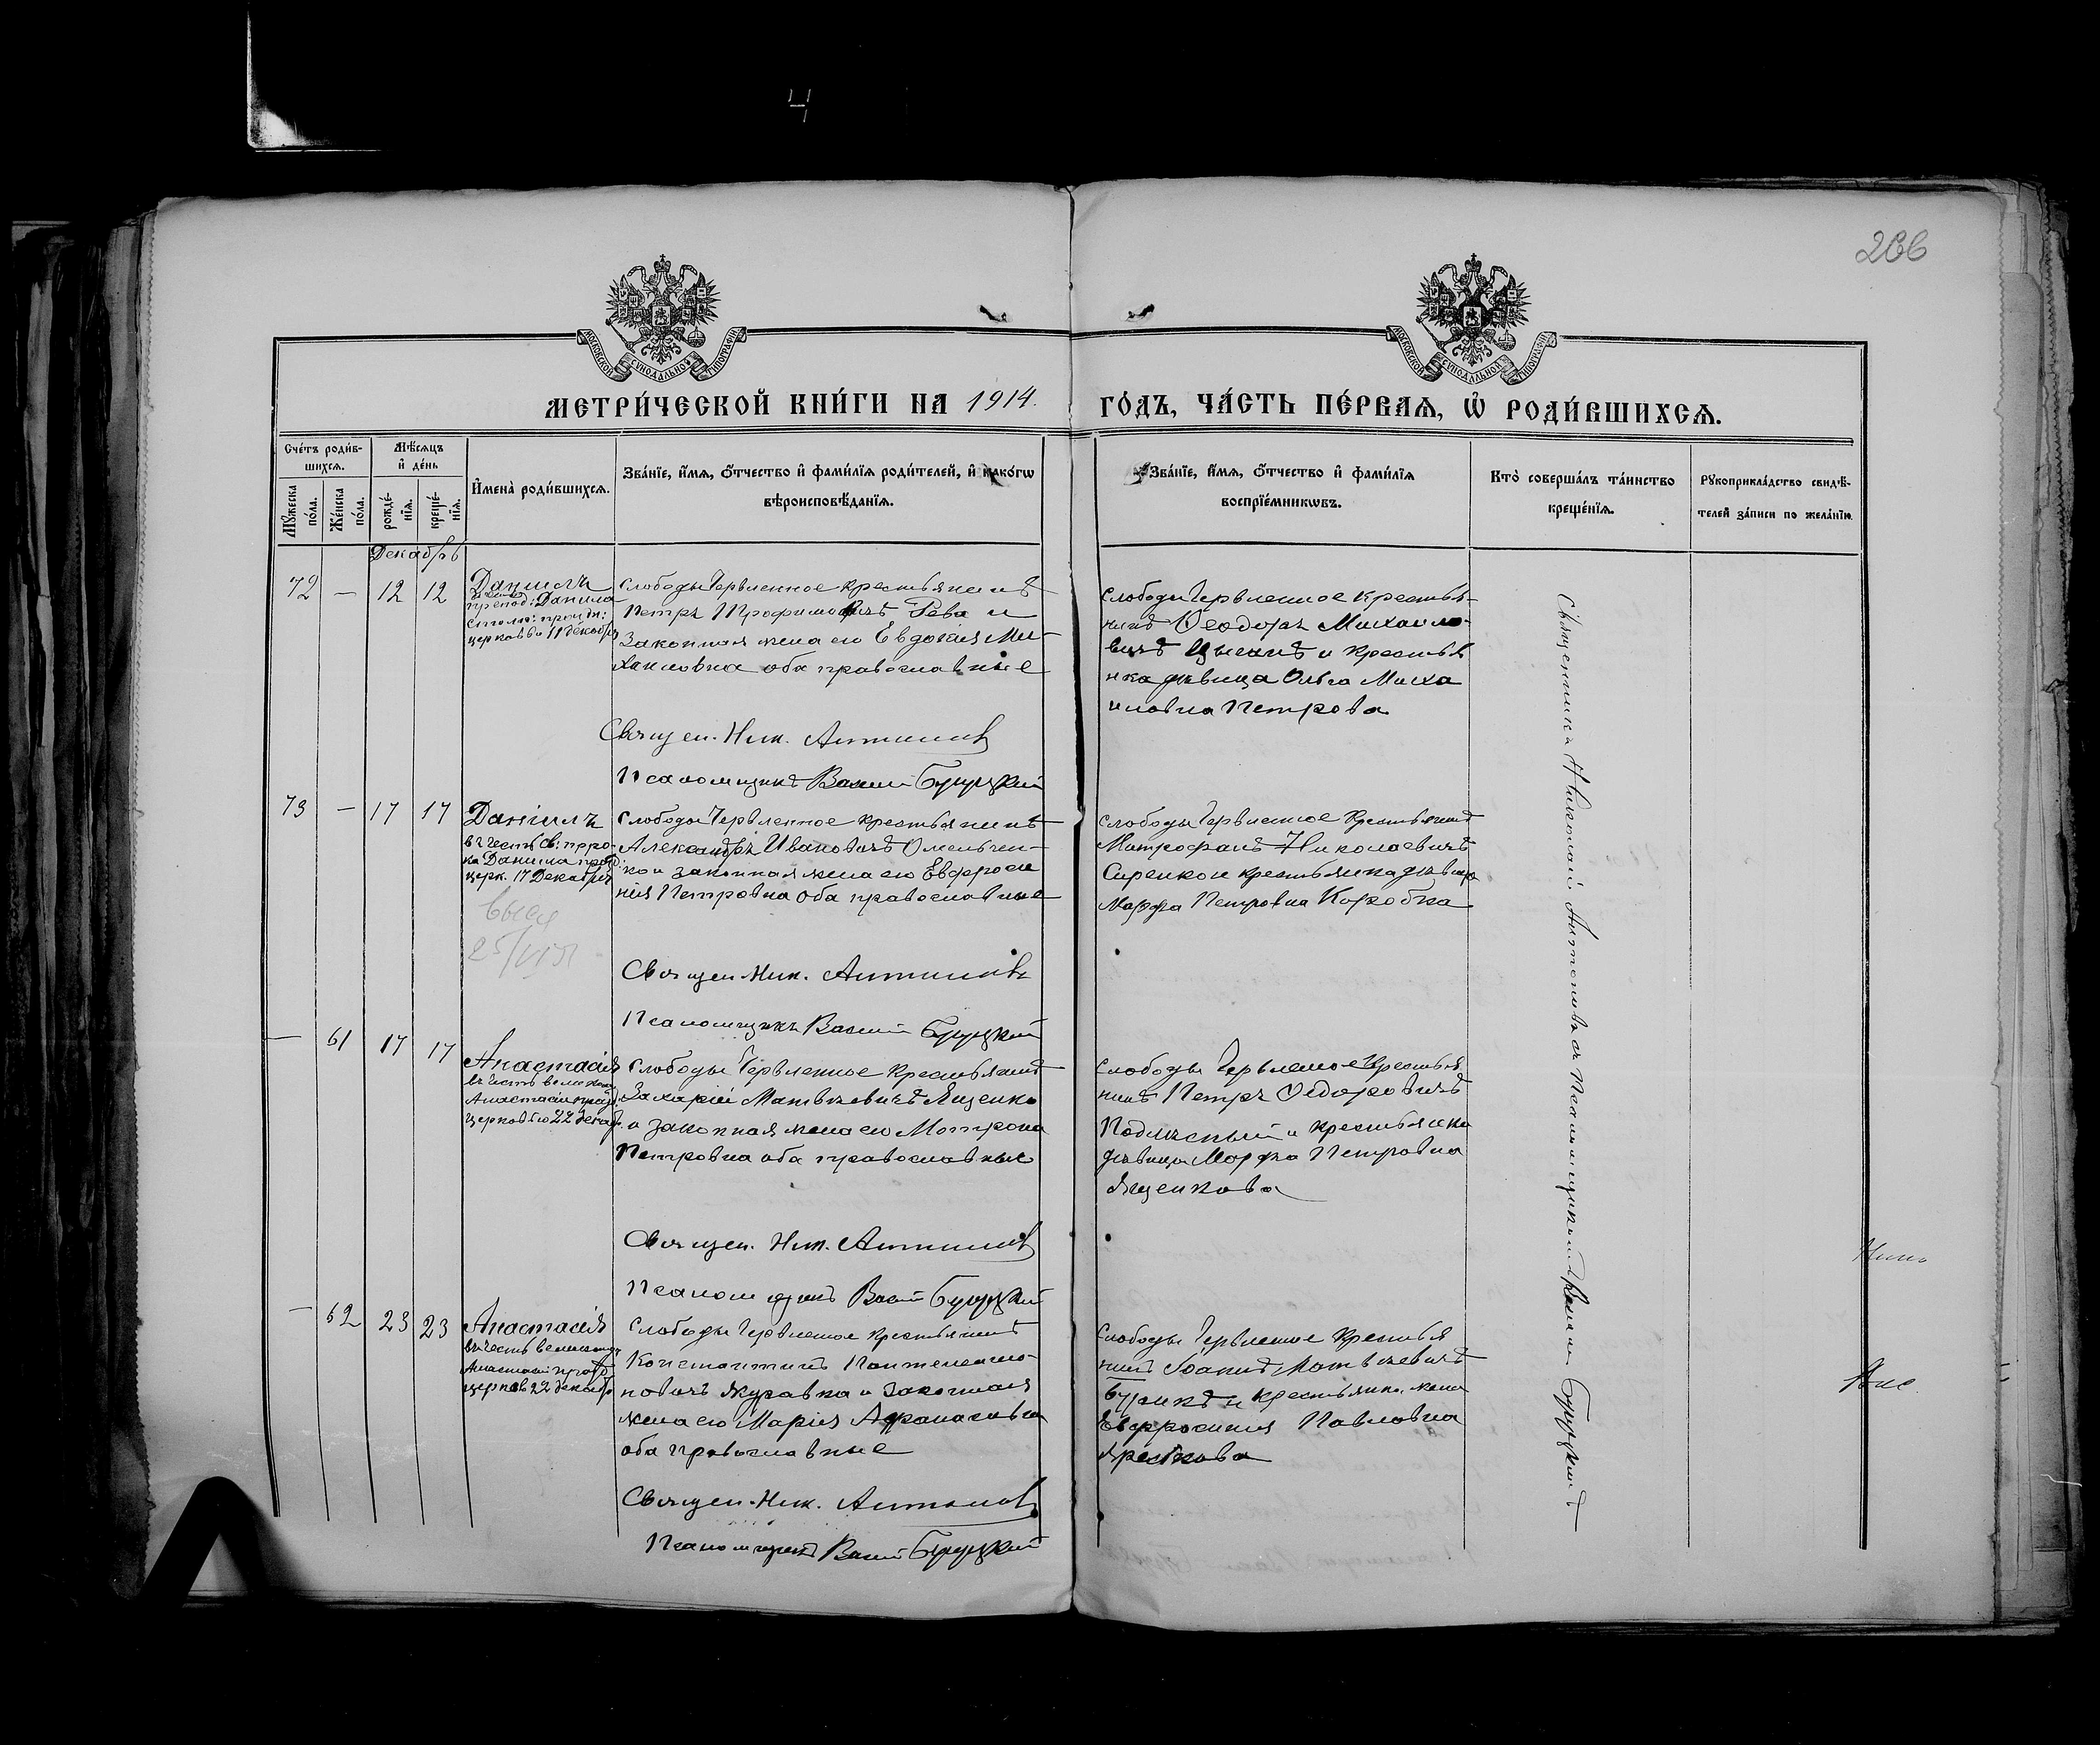 4
266
МОСКОВСКОЙ СѴНОДАЛЬНОЙ ТИПОГРАФІИ
МОСКОВСКОЙ СѴНОДАЛЬНОЙ ТИПОГРАФІИ
МЕТРИ́ЧЕСКОЙ КНИ́ГИ НА 1914. ГО́ДЪ, ЧА́СТЬ ПЕ́РВАѦ, Ѡ҆ РОДИ́ВШИХСѦ.
Сче́тъ роди́в-
шихсѧ.
Мꙋ́жеска по́ла.
Же́нска по́ла.
Мѣ́сѧцъ
и҆ де́нь
рожде́-нїѧ.
креще́-нїѧ.
И҆мена̀ роди́вшихсѧ.
Зва́нїе, и҆́мѧ, ѻ҆́тчество и҆ фами́лїѧ роди́телей, и҆ како́гѡ
вѣроисповѣ́данїѧ.
Зва́нїе, и҆́мѧ, ѻ҆́тчество и҆ фами́лїѧ
воспрїе́мникѡвъ.
Кто̀ соверша́лъ та́инство
креще́нїѧ.
Рꙋкоприкла́дство свидѣ́-
телей за́писи по жела́нїю.
Декабрь
72 — 12 12
Даниилъ
препод: Данiила
Столп: празн:
церковью 11 декабря
Слободы Червленное крестьянинъ
Петръ Трофимовичъ Рева и
Законная жена его Евдокiя Ми-
хаиловна оба православные
Священ. Ник. Антоновъ
Псаломщикъ Василiй Буцкий
Слободы Червленное крестья-
нинъ Ѳеодоръ Михаило-
вичъ Цыганъ и крестья
нка дѣвица Ольга Миха
иловна Петрова
73 — 17 17
Данiилъ
въ честь Св: про-
ка Данiила празд:
церк. 17 Декабря
25/VI 51
Слободы Червленное крестьянинъ
Александръ Ивановичъ Омельчен-
ко и законная жена его Евфроси
нiя Петровна оба православные
Священ Ник. Антоновъ
Псаломщикъ Василiй Буцкий
Слободы Червленное Крестьянинъ
Митрофанъ Николаевичъ
Сиренко и крестьянка дѣвица
Марфа Петровна Коробка
— 61 17 17
Анастасiя
въ честь великом.
Анастасiи празд.
церковью 22 декаб.
Слободы Червленное Крестьянинъ
Захарiй Матвѣевичъ Яценко
и законная жена его Матрона
Петровна оба православные
Священ. Ник. Антоновъ
Псаломщикъ Василiй Буцкий
Слободы Червленое Крестья
нинъ Петръ Ѳедоровичъ
Подлѣсный и крестьянка
дѣвица Марфа Петровна
Яценкова
— 62 23 23
Анастасiя
въ честь великомуч
Анастасiи празд
церков 22 декабр
Слободы Червленное крестьянинъ
Константинъ Пантелеимо-
новичъ Журавка и Законная
жена его Марiя Афанасьевна
оба православные
Священ. Ник. Антоновъ
Псаломщикъ Василiй Буцкий
Слободы Червленное Крестья
нинъ Iоаннъ Матвѣевичъ
и крестьянка жена
Евфросинiя Павловна
Священникъ Николай Антоновъ съ Псаломщикомъ Василiемъ Буцкимъ